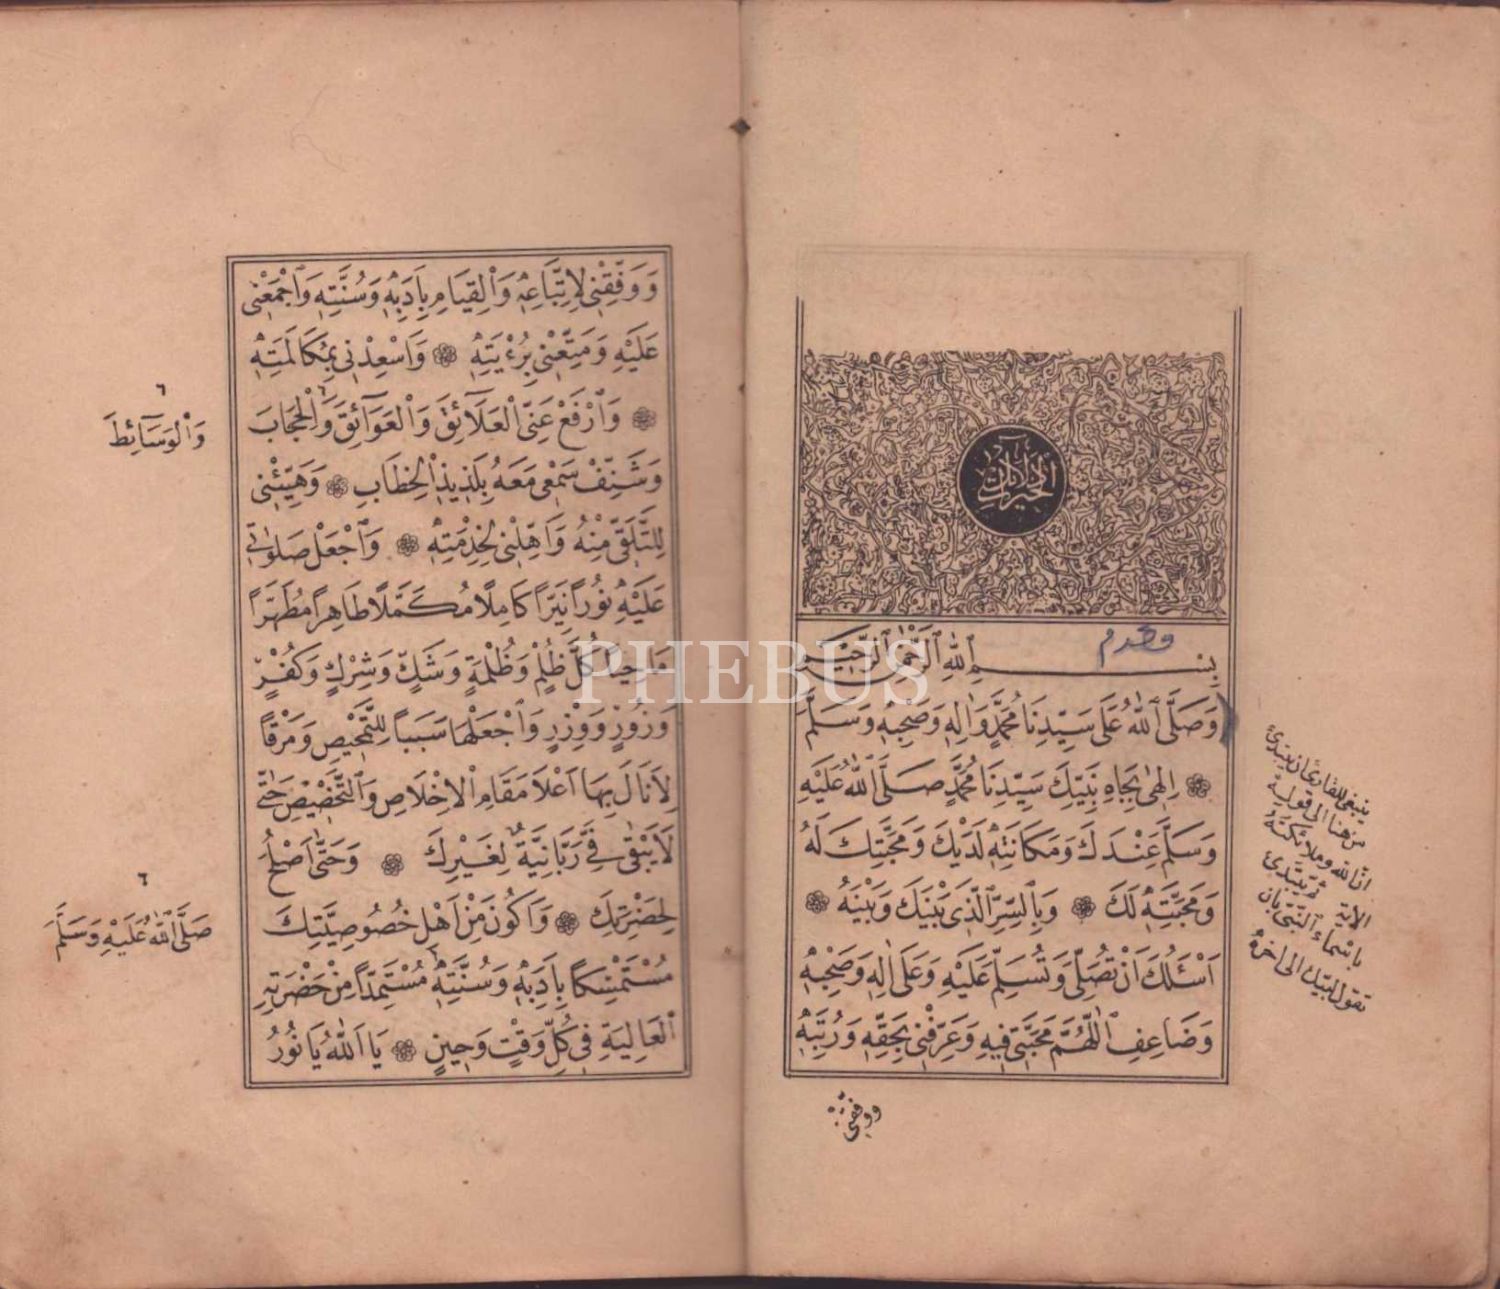 بِسْمِ اللهِ الرَّحْمٰنِ الرَّحِيمِ
وَصَلَّى اللهُ عَلَى سَيِّدِنَا مُحَمَّدٍ وَاٰلِهٖ وَصَحْبِهٖ وَسَلَّمَ
اِلٰهِى بِجَاهِ نَبِيِّكَ سَيِّدِنَا مُحَمَّدٍ صَلَّى اللهُ عَلَيْهِ
وَسَلَّمَ عِنْدَكَ وَمَكَانَتِهٖ لَدَيْكَ وَمَحَبَّتِكَ لَهُ
وَمَحَبَّتِهٖ لَكَ ۞ وَبِالسِّرِّ الَّذِى بَيْنَكَ وَبَيْنَهُ ۞
اَسْئَلُكَ اَنْ تُصَلِّىَ وَتُسَلِّمَ عَلَيْهِ وَعَلَى اٰلِهٖ وَصَحْبِهٖ
وَضَاعِفِ اللّٰهُمَّ مَحَبَّتِى فِيهِ وَعَرِّفْنِى بِحَقِّهٖ وَرُتَبِهٖ
ووفقنى
ينبغى للقارئ ان يبتدئ
من هنا الى قوله
ان الله وملائكته
الاية ثم يبتدئ
باسماء النبى بان
تقول لبيك الى اخره
وَوَفِّقْنِى لِاتِّبَاعِهٖ وَالْقِيَامِ بِاٰدَبِهٖ وَسُنَّتِهٖ وَاجْمَعْنِى
عَلَيْهِ وَمَتِّعْنِى بِرُؤْيَتِهٖ ۞ وَاَسْعِدْنِى بِمُكَالَمَتِهٖ
۞ وَارْفَعْ عَنِّى الْعَلَآئِقَ وَالْعَوَآئِقَ وَالْحِجَابَ
وَالْوَسَآئِطَ
وَشَنِّفْ سَمْعِى مَعَهُ بِلَذِيذِ الْخِطَابِ ۞ وَهَيِّئْنِى
لِلتَّلَقِّى مِنْهُ وَاَهِّلْنِى لِخِدْمَتِهٖ ۞ وَاجْعَلْ صَلَوٰتِى
عَلَيْهِ نُورًا نَيِّرًا كَامِلًا مُكَمَّلًا طَاهِرًا مُطَهَّرًا
مَاحِيًا كُلَّ ظُلْمٍ وَظُلْمَةٍ وَشَكٍّ وَشِرْكٍ وَكُفْرٍ
وَزُورٍ وَوِزْرٍ وَاجْعَلْهَا سَبَبًا لِلتَّمْحِيصِ وَمَرْقًا
لِاَنَالَ بِهَا اَعْلَا مَقَامِ الْاِخْلَاصِ وَالتَّخْصِيصِ حَتّٰى
لَا يَبْقٰى فِىَّ رَبَّانِيَّةٌ لِغَيْرِكَ ۞ وَحَتّٰى اَصْلُحَ
لِحَضْرَتِكَ ۞ وَاَكُونَ مِنْ اَهْلِ خُصُوصِيَّتِكَ
صَلَّى اللهُ عَلَيْهِ وَسَلَّمَ
مُسْتَمْسِكًا بِاٰدَبِهٖ وَسُنَّتِهٖ مُسْتَمِدًّا مِنْ حَضْرَتِهِ
الْعَالِيَةِ فِى كُلِّ وَقْتٍ وَحِينٍ ۞ يَا اَللهُ يَا نُورُ
PHEBUS